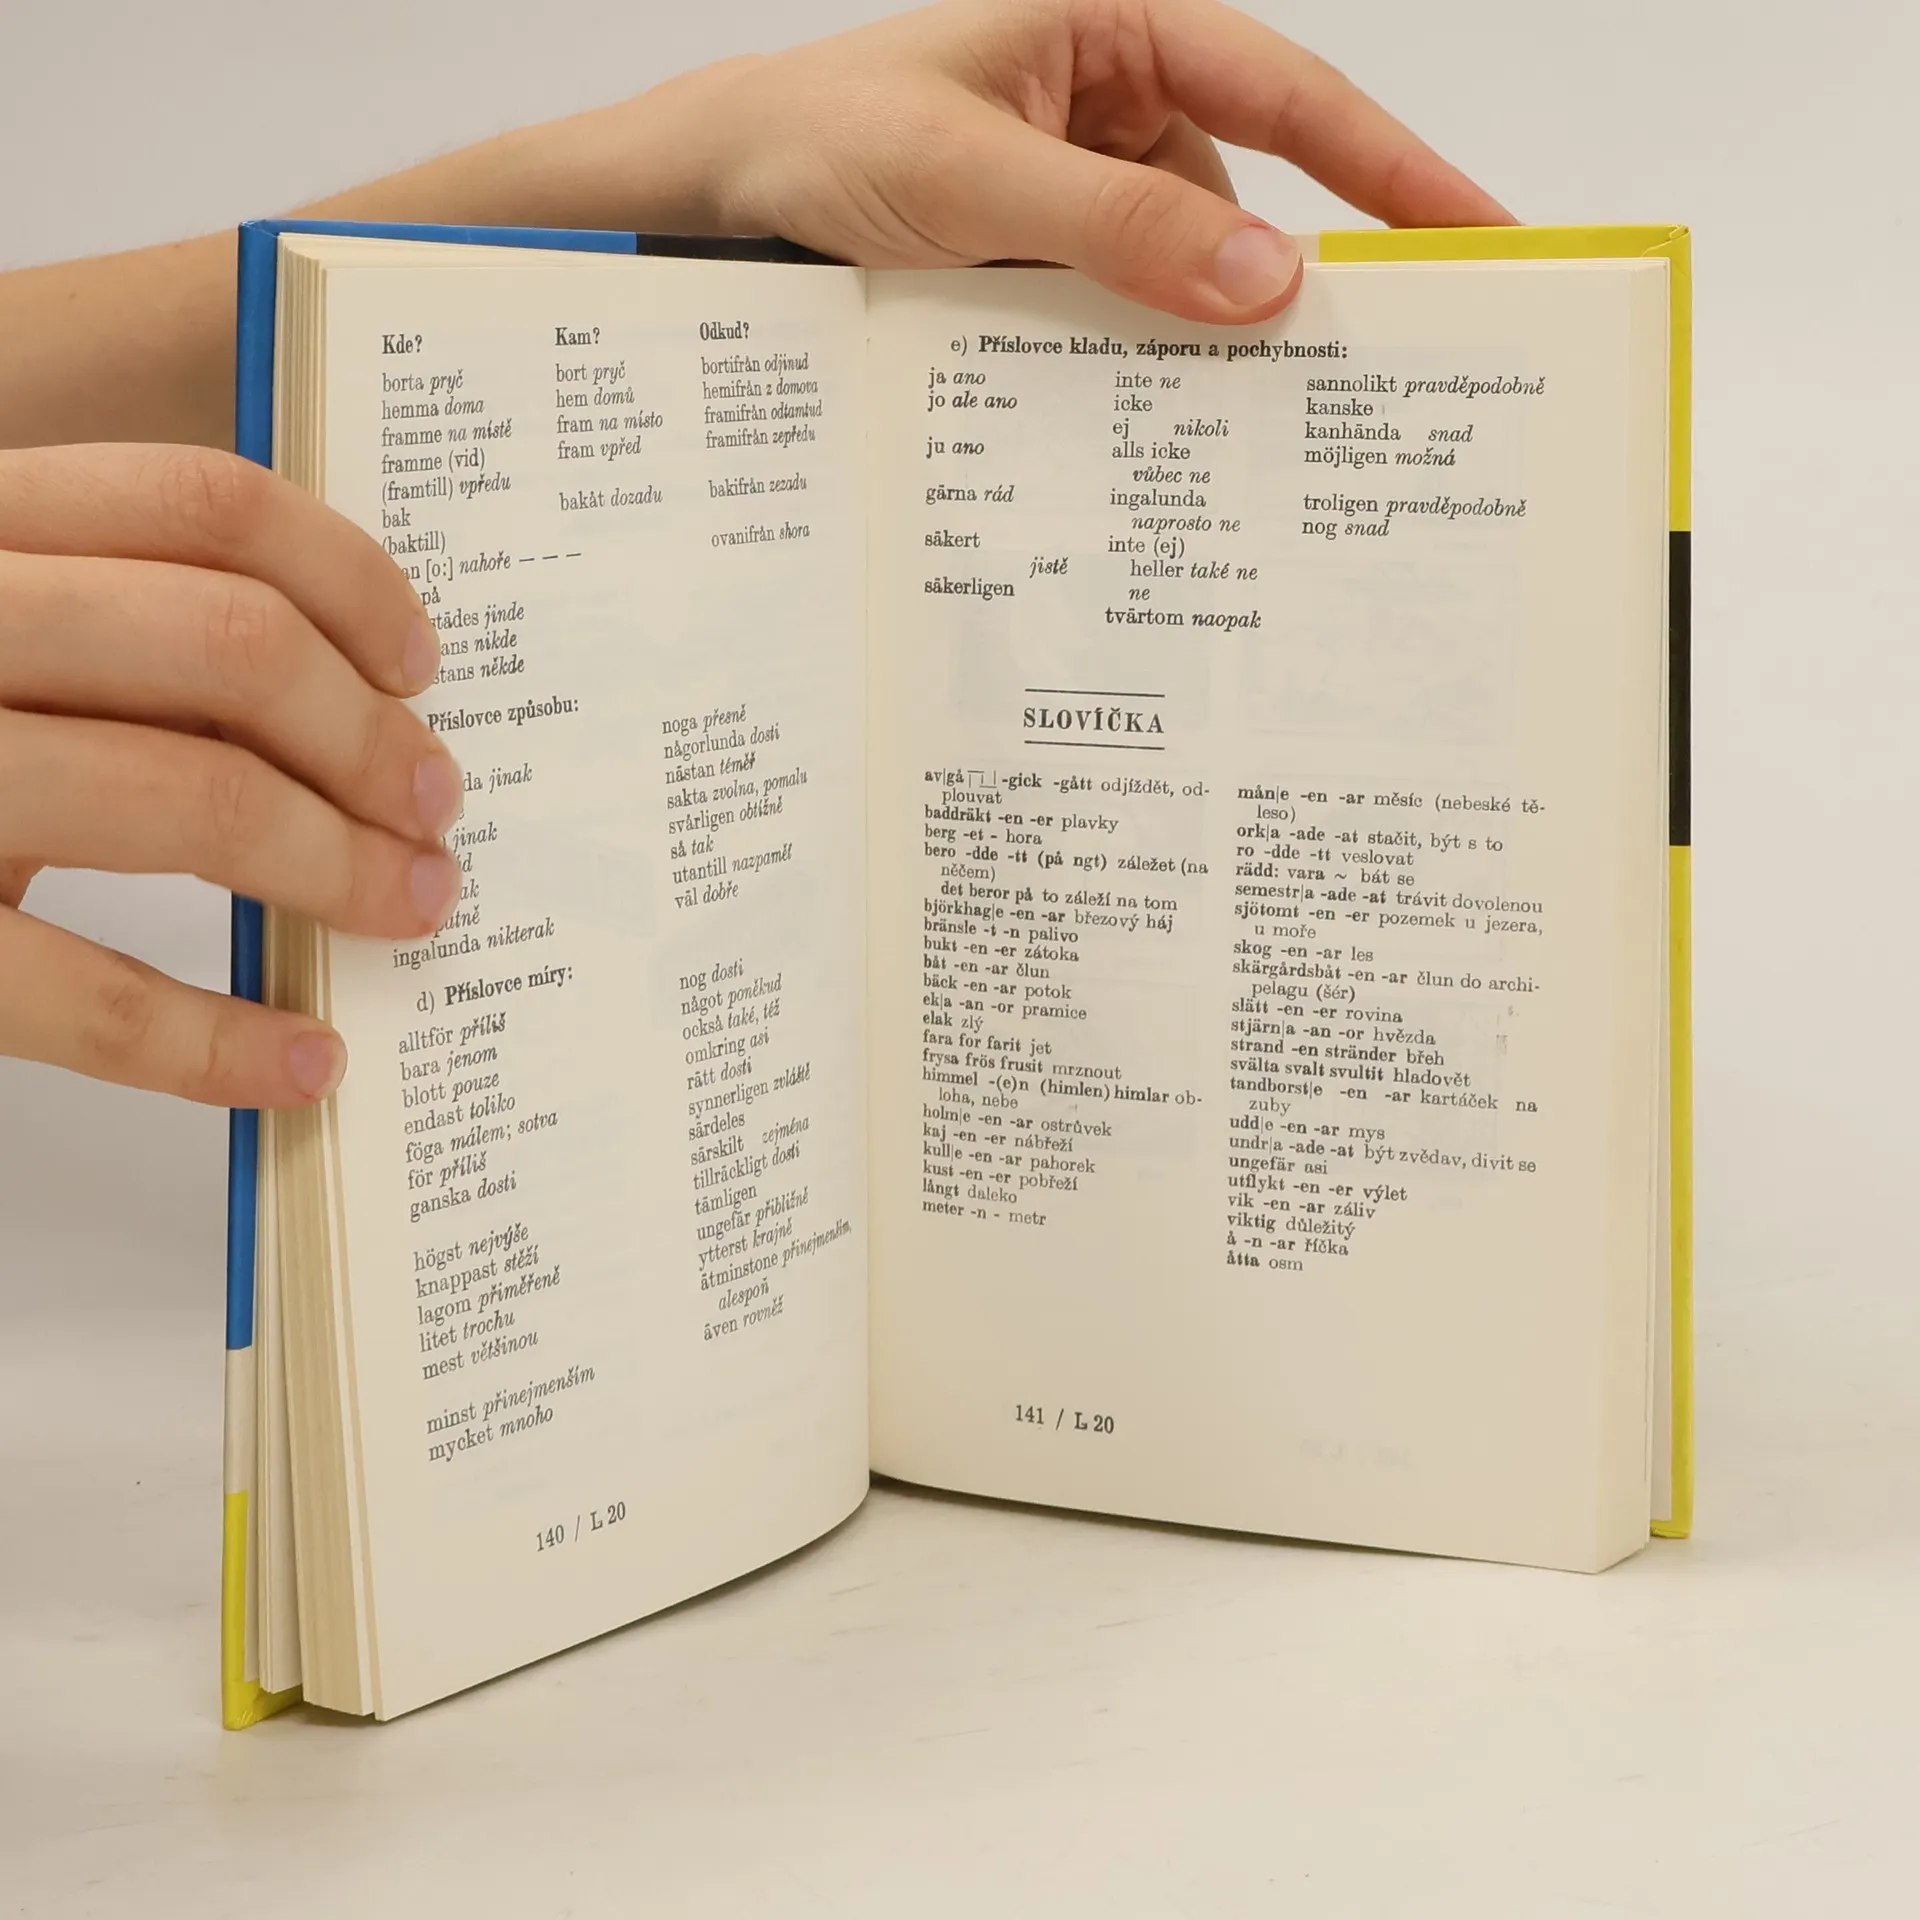 Kde? Kam? Odkud?
borta pryč bort pryč bortifrån odjinud
hemma doma hem domů hemifrån z domova
framme na místě fram na místo framifrån odtamtud
framme (vid) fram vpřed framifrån zepředu
(framtill) vpředu
bak bakåt dozadu bakifrån zezadu
(baktill)
[o:] nahoře — — — ovanifrån shora
på
jinde
nikde
někde
Příslovce způsobu:
jinak
jinak
ingalunda nikterak
noga přesně
någorlunda dosti
nästan téměř
sakta zvolna, pomalu
svårligen obtížně
så tak
utantill nazpaměť
väl dobře
d) Příslovce míry:
alltför příliš
bara jenom
blott pouze
endast toliko
föga málem; sotva
för příliš
ganska dosti
högst nejvýše
knappast stěží
lagom přiměřeně
litet trochu
mest většinou
minst přinejmenším
mycket mnoho
nog dosti
något poněkud
också také, též
omkring asi
rätt dosti
synnerligen zvláště
särdeles
särskilt zejména
tillräckligt dosti
tämligen
ungefär přibližně
ytterst krajně
åtminstone přinejmenším,
alespoň
även rovněž
140 / L 20
e) Příslovce kladu, záporu a pochybnosti:
ja ano inte ne sannolikt pravděpodobně
jo ale ano icke kanske
ej nikoli kanhända snad
ju ano alls icke möjligen možná
vůbec ne
gärna rád ingalunda troligen pravděpodobně
naprosto ne nog snad
säkert inte (ej)
jistě heller také ne
säkerligen ne
tvärtom naopak
SLOVÍČKA
av|gå -gick -gått odjíždět, od-
plouvat
baddräkt -en -er plavky
berg -et - hora
bero -dde -tt (på ngt) záležet (na
něčem)
det beror på to záleží na tom
björkhag|e -en -ar březový háj
bränsle -t -n palivo
bukt -en -er zátoka
båt -en -ar člun
bäck -en -ar potok
ek|a -an -or pramice
elak zlý
fara for farit jet
frysa frös frusit mrznout
himmel -(e)n (himlen) himlar ob-
loha, nebe
holm|e -en -ar ostrůvek
kaj -en -er nábřeží
kull|e -en -ar pahorek
kust -en -er pobřeží
långt daleko
meter -n - metr
mån|e -en -ar měsíc (nebeské tě-
leso)
ork|a -ade -at stačit, být s to
ro -dde -tt veslovat
rädd: vara ~ bát se
semestr|a -ade -at trávit dovolenou
sjötomt -en -er pozemek u jezera,
u moře
skog -en -ar les
skärgårdsbåt -en -ar člun do archi-
pelagu (šér)
slätt -en -er rovina
stjärn|a -an -or hvězda
strand -en stränder břeh
svälta svalt svultit hladovět
tandborst|e -en -ar kartáček na
zuby
udd|e -en -ar mys
undr|a -ade -at být zvědav, divit se
ungefär asi
utflykt -en -er výlet
vik -en -ar záliv
viktig důležitý
å -n -ar říčka
åtta osm
141 / L 20